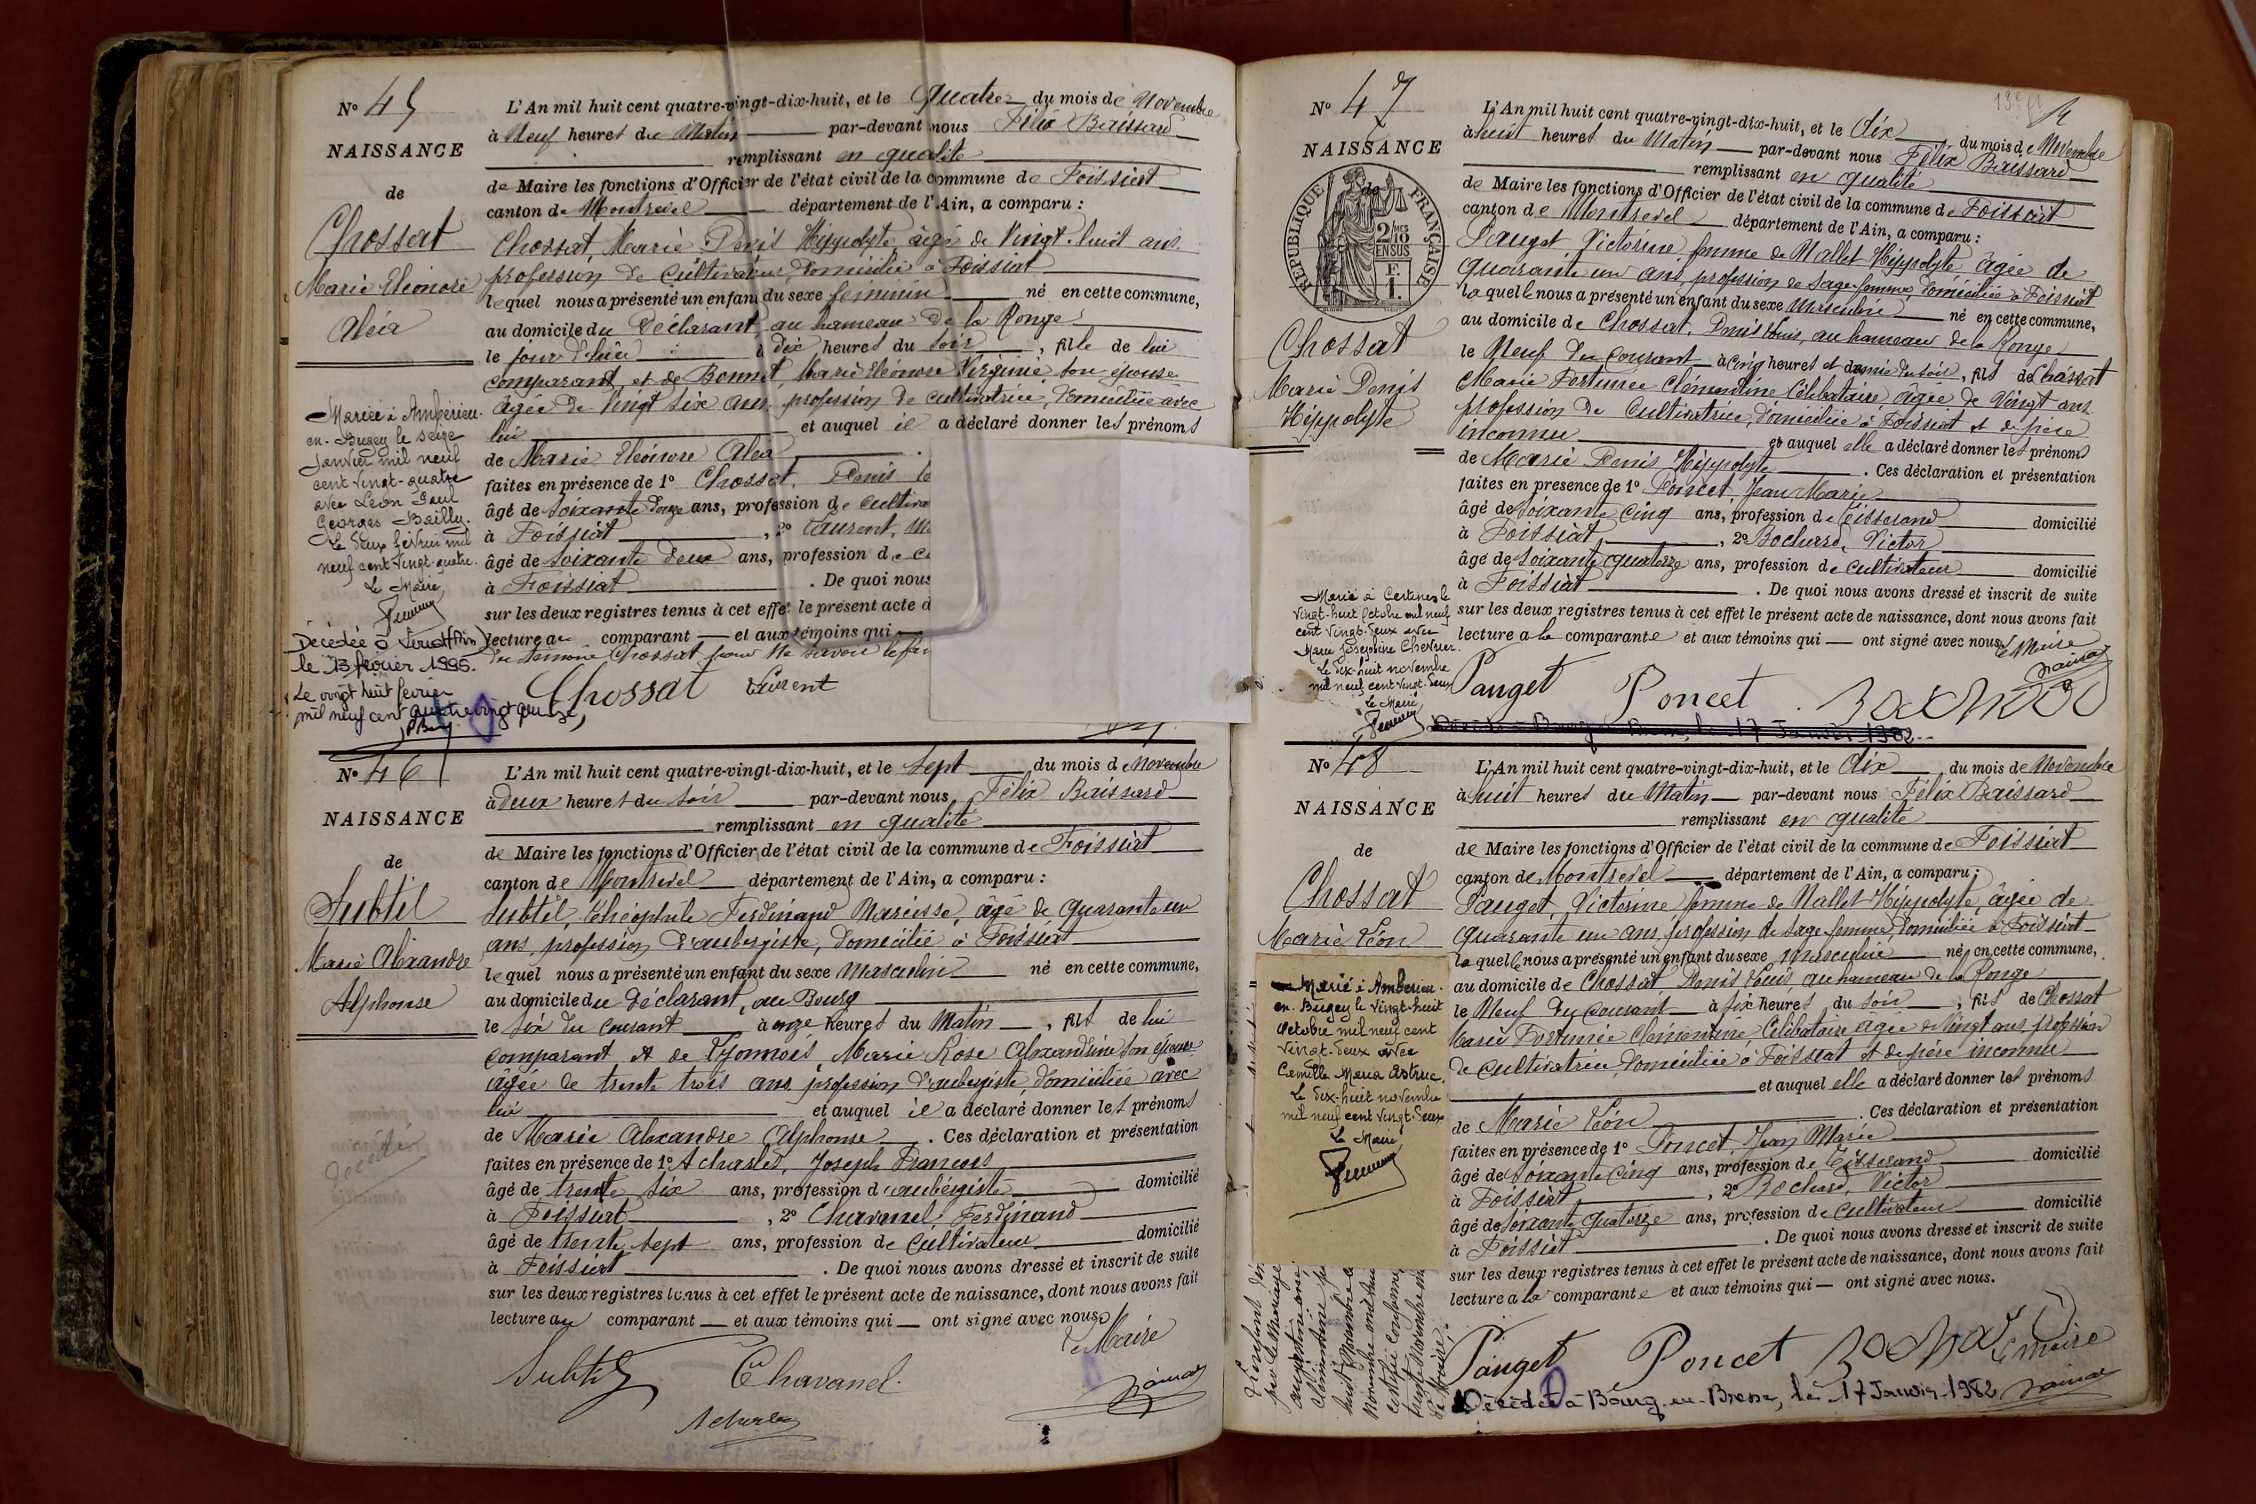 N° 45
NAISSANCE
de
Chossat
Marie Eléonore
Aléa
Mariée à Ambérieu-
en-Bugey le seize
janvier mil neuf
cent vingt-quatre
avec Léon Paul
Georges Bailly.
Le deux février mil
neuf cent vingt-quatre.
Le Maire
Décédée à (Ain)
le 13 février 1995.
Le vingt huit février
mil neuf cent quatre vingt quinze,
L'An mil huit cent quatre-vingt-dix-huit, et le Quatre du mois de Novembre
à Neuf heures du Matin par-devant nous Félix
remplissant en qualité
de Maire les fonctions d'Officier de l'état civil de la commune de Foissiat
canton de Montrevel département de l'Ain, a comparu :
Chossat, Marie Denis Hippolyte, âgé de Vingt-huit ans
profession de Cultivateur, domicilié à Foissiat
lequel nous a présenté un enfant du sexe féminin né en cette commune,
au domicile du Déclarant, au hameau de la Ronge
le jour d'hier à dix heures du soir, fille de lui
comparant, et de Bonnet, Marie Eléonore Virginie son épouse
âgée de Vingt six ans, profession de cultivatrice, domiciliée avec
lui et auquel il a déclaré donner les prénoms
de Marie Eléonore Aléa
faites en présence de 1° Chossat, Denis
âgé de soixante douze ans, profession de cultiva
à Foissiat, 2° Laurent,
âgé de soixante deux ans, profession de
à Foissiat. De quoi nous
sur les deux registres tenus à cet effet le présent acte d
lecture au comparant et aux témoins qui
du témoin Chossat pour ne savoir le
Chossat Laurent
N° 46
NAISSANCE
de
Subtil
Marie Alexandre
Alphonse
Décédé
L'An mil huit cent quatre-vingt-dix-huit, et le Sept du mois de Novembre
à deux heures du soir par-devant nous Félix
remplissant en qualité
de Maire les fonctions d'Officier de l'état civil de la commune de Foissiat
canton de Montrevel département de l'Ain, a comparu :
Subtil Théophile Ferdinand Narcisse, âgé de quarante un
ans, profession d'aubergiste, domicilié à Foissiat
lequel nous a présenté un enfant du sexe Masculin né en cette commune,
au domicile du Déclarant, au Bourg
le six du courant à onze heures du Matin, fils de lui
comparant et de Lyonnois Marie Rose Alexandrine son épouse
âgée de trente trois ans, profession d'aubergiste, domiciliée avec
lui et auquel il a déclaré donner les prénoms
de Marie Alexandre Alphonse. Ces déclaration et présentation
faites en présence de 1° Acharles, Joseph François
âgé de trente six ans, profession d'aubergiste domicilié
à Foissiat, 2° Chavanel, Ferdinand
âgé de trente sept ans, profession de Cultivateur domicilié
à Foissiat. De quoi nous avons dressé et inscrit de suite
sur les deux registres tenus à cet effet le présent acte de naissance, dont nous avons fait
lecture au comparant et aux témoins qui ont signé avec nous.
Le Maire
Subtil Chavanel
Acharles
N° 47
NAISSANCE
de
RÉPUBLIQUE FRANÇAISE
2 10
EN SUS
Chossat
Marie Denis
Hippolyte
Marié à Certines le
vingt-huit octobre mil neuf
cent vingt-deux avec
Marie Joséphine Chevrier.
Le dix-huit novembre
mil neuf cent vingt-deux
Le Maire
L'An mil huit cent quatre-vingt-dix-huit, et le dix du mois de Novembre
à huit heures du Matin par-devant nous Félix
remplissant en qualité
de Maire les fonctions d'Officier de l'état civil de la commune de Foissiat
canton de Montrevel département de l'Ain, a comparu :
Pauget Victorine, femme de Mallet Hippolyte, âgée de
quarante un ans, profession de Sage-femme, domiciliée à Foissiat
laquelle nous a présenté un enfant du sexe Masculin né en cette commune,
au domicile de Chossat, Denis Louis, au hameau de la Ronge
le Neuf du courant à cinq heures et demie du soir, fils de Chossat
Marie Fortunée Clémentine Célibataire, âgée de Vingt ans,
profession de Cultivatrice, domiciliée à Foissiat et de père
inconnu et auquel elle a déclaré donner les prénoms
de Marie Denis Hippolyte. Ces déclaration et présentation
faites en présence de 1° Poncet, Jean Marie
âgé de soixante cinq ans, profession de Tisserand domicilié
à Foissiat, 2° Bochard, Victor
âgé de soixante quatorze ans, profession de cultivateur domicilié
à Foissiat. De quoi nous avons dressé et inscrit de suite
sur les deux registres tenus à cet effet le présent acte de naissance, dont nous avons fait
lecture à la comparante et aux témoins qui ont signé avec nous.
Le Maire
Pauget Poncet Bochard
Décédé à Bourg-en-Bresse, le 17 Janvier 1982
N° 48
NAISSANCE
de
Chossat
Marie Léon
Marié à Ambérieu-
en-Bugey le vingt-huit
Octobre mil neuf cent
vingt-deux avec
Camille Maria Astruc.
Le dix-huit novembre
mil neuf cent vingt-deux
Le Maire
L'An mil huit cent quatre-vingt-dix-huit, et le dix du mois de Novembre
à huit heures du Matin par-devant nous Félix
remplissant en qualité
de Maire les fonctions d'Officier de l'état civil de la commune de Foissiat
canton de Montrevel département de l'Ain, a comparu :
Pauget, Victorine femme de Mallet Hippolyte, âgée de
quarante un ans, profession de sage-femme, domiciliée à Foissiat
laquelle nous a présenté un enfant du sexe masculin né en cette commune,
au domicile de Chossat Denis Louis, au hameau de la Ronge
le Neuf du courant à six heures du soir, fils de Chossat
Marie Fortunée Clémentine, Célibataire âgée de Vingt ans, profession
de cultivatrice, domiciliée à Foissiat et de père inconnu
et auquel elle a déclaré donner les prénoms
de Marie Léon. Ces déclaration et présentation
faites en présence de 1° Poncet, Jean Marie
âgé de soixante cinq ans, profession de Tisserand domicilié
à Foissiat, 2° Bochard, Victor
âgé de soixante quatorze ans, profession de cultivateur domicilié
à Foissiat. De quoi nous avons dressé et inscrit de suite
sur les deux registres tenus à cet effet le présent acte de naissance, dont nous avons fait
lecture à la comparante et aux témoins qui ont signé avec nous.
Pauget Poncet Bochard Le maire
Décédé à Bourg-en-Bresse, le 17 Janvier 1982